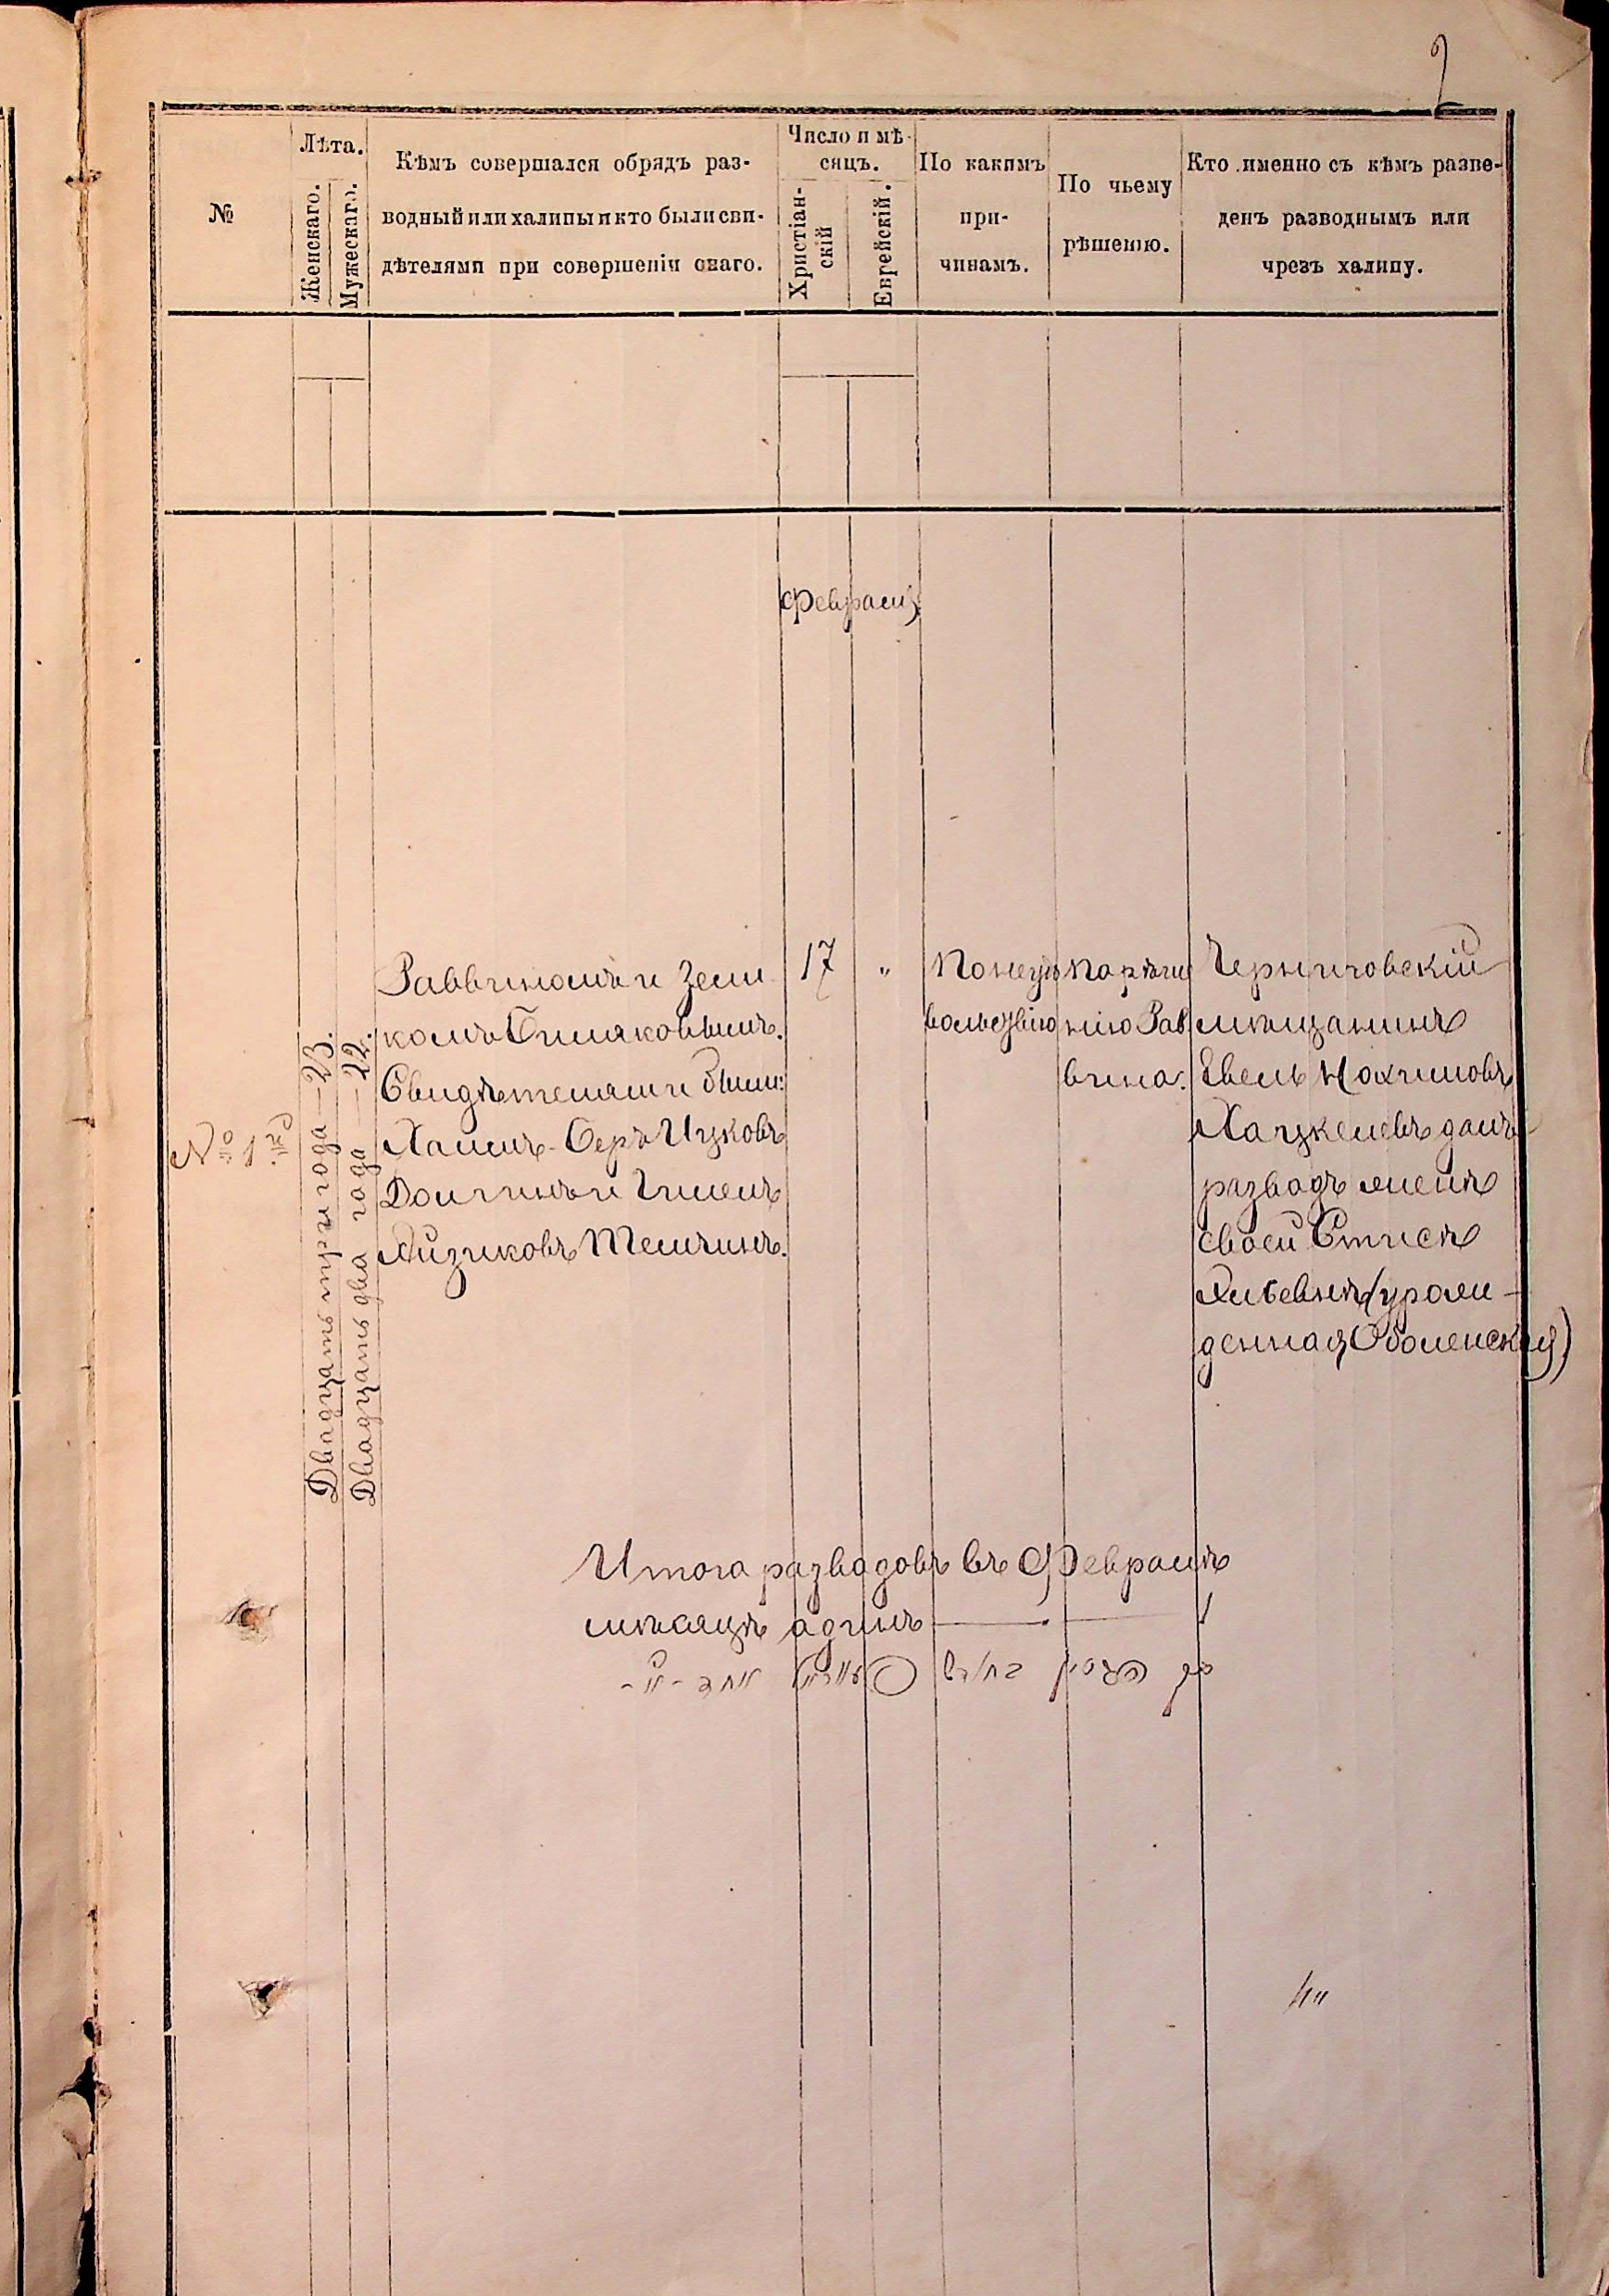 2
№
Лѣта.
Женскаго.
Мужескаго.
Кѣмъ совершался обрядъ раз-
водный или халицы и кто были сви-
дѣтелями при совершеніи онаго.
Число и мѣ-
сяцъ.
Христіан-
скій
Еврейскій.
По какимъ
при-
чинамъ.
По чьему
рѣшенію.
Кто именно съ кѣмъ разве-
денъ разводнымъ или
чрезъ халицу.
Февраль
№ 1й
Двадцать три года — 23.
Двадцать два года — 22.
Раввиномъ и Зели
комъ
Свидѣтелями были:
Хаимъ-Беръ Ицковъ
Долгинъ и Гилель
Айзиковъ Темчинъ.
17
"
По неудо
вольствію
По рѣше
нію Рав
вина.
Черниговскій
мѣщанинъ
Евель Нохимовъ
Хацкелевъ далъ
разводъ женѣ
своей
(урож-
денная Оболенская)
Итого разводовъ въ Февралѣ
мѣсяцѣ одинъ — 1